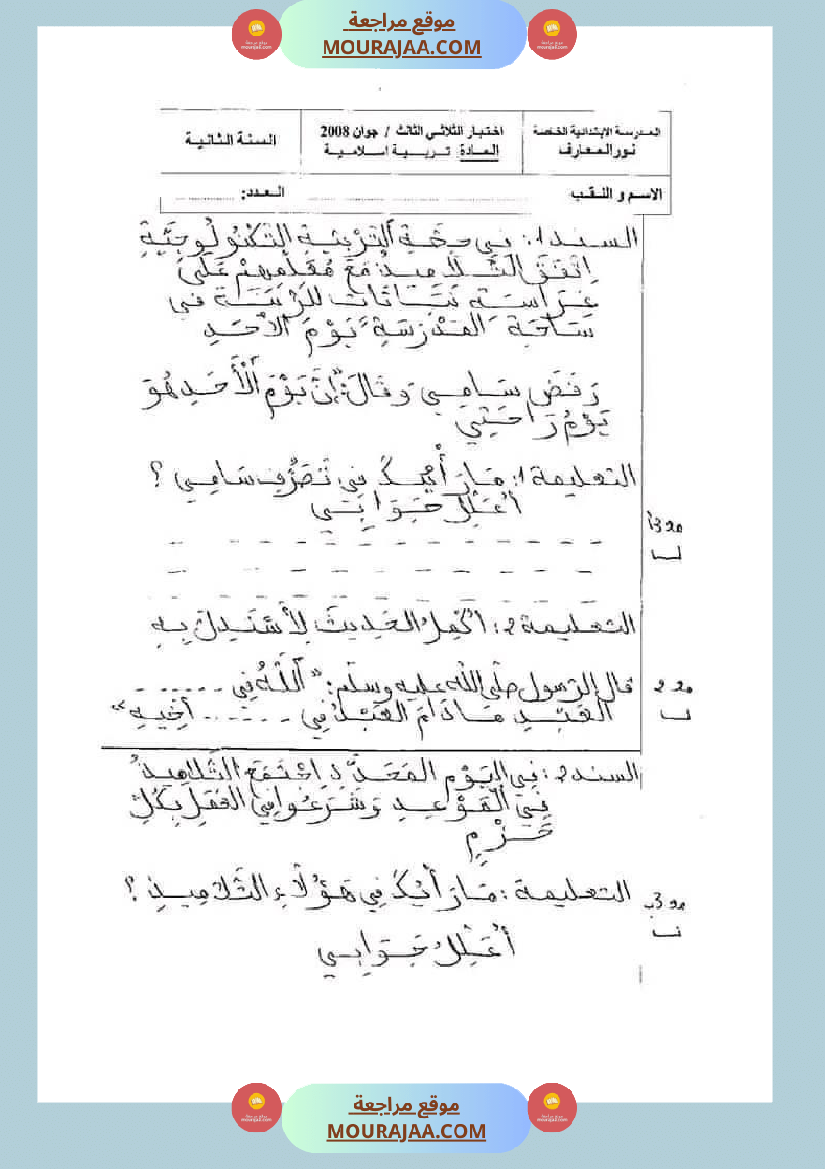 موقع مراجعة
MOURAJAA.COM
المدرسة الابتدائية الخاصة
نور المعارف
اختبار الثلاثي الثالث / جوان 2008
المادة: تربية اسلامية
السنة الثانية
الاسم و اللقب
العدد:
السند 1: في حصّة التّرْبيَةِ التّكْنُولُوجِيَّةِ
اِتَّفَقَ التَّلاَمِيذُ مَعَ مُعَلِّمِهِمْ عَلَى
غِرَاسَةِ نَبَاتَاتٍ لِلزِّينَةِ في
سَاحَةِ المَدْرَسَةِ يَوْمَ الأحَدِ
رَفَضَ سَامِي وَقَالَ: "إِنَّ يَوْمَ الْأَحَدِ هُوَ
يَوْمُ رَاحَتِي
التعليمة 1: مَا رَأْيُكَ في تَصَرُّفِ سَامِي ؟
أُعَلِّلُ جَوَابِي
مع 3 أ
التعليمة 2: أُكْمِلُ الحَدِيثَ لِأَسْتَدِلَّ بِهِ
قال الرّسول صلّى اللّه عليه وسلّم: "اَللَّهُ فِي ......
العَبْدِ مَا دَامَ العَبْدُ فِي ...... أَخِيهِ"
مع 2
السند 2: في اليَوْمِ المُحَدَّدِ اجْتَمَعَ التَّلاَمِيذُ
فِي المَوْعِدِ وَشَرَعُوا فِي العَمَلِ بِكُلِّ
حَزْمٍ
التعليمة: مَا رَأْيُكَ فِي هَؤُلاَءِ التَّلاَمِيذِ ؟
مع 3 ب
أُعَلِّلُ جَوَابِي
موقع مراجعة
MOURAJAA.COM